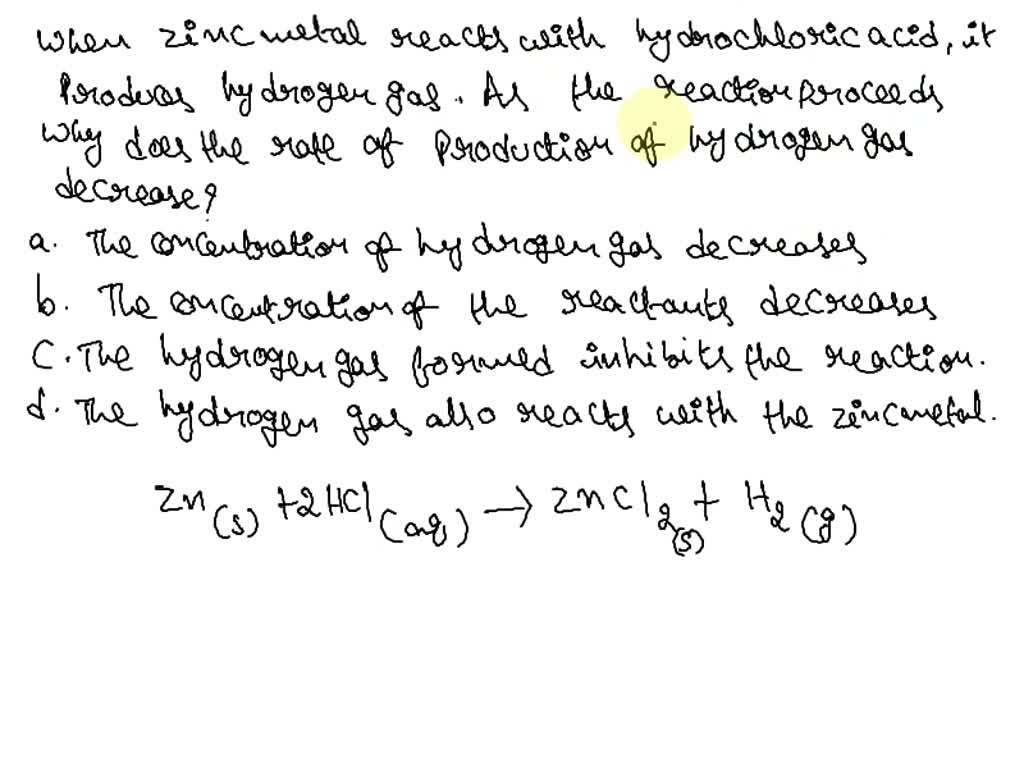 When zinc metal reacts with hydrochloric acid, it
Produces hydrogen gas. As the reaction proceeds
Why does the rate of production of hydrogen gas
decrease?
a. The concentration of hydrogen gas decreases
b. The concentration of the reactants decreases
C. The hydrogen gas formed inhibits the reaction.
d. The hydrogen gas also reacts with the zinc metal.
Zn(s) + 2HCl(aq) → ZnCl₂(s) + H₂(g)